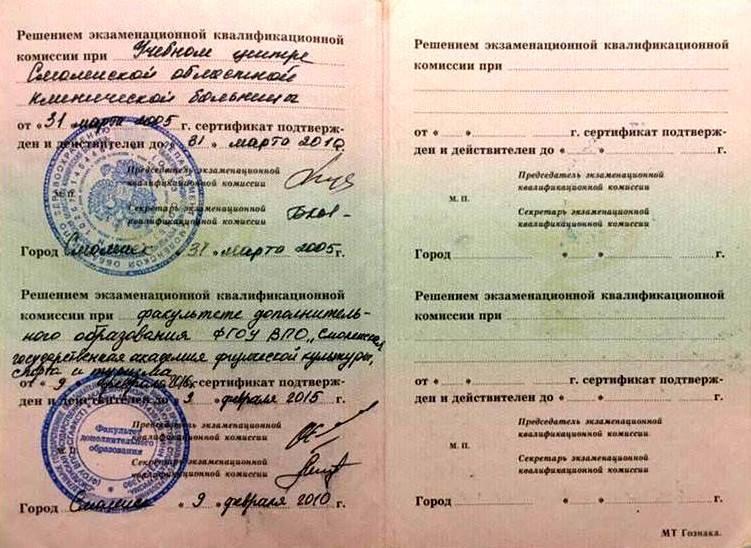 Решением экзаменационной квалификационной
комиссии при Учебном центре
Смоленской областной
клинической больницы
от « 31 » марта 2005 г. сертификат подтверж-
ден и действителен до « 31 » марта 2010
Председатель экзаменационной
квалификационной комиссии
М. П.
Секретарь экзаменационной
квалификационной комиссии
Город Смоленск « 31 » марта 2005 г.
Решением экзаменационной квалификационной
комиссии при факультете дополнитель-
ного образования ФГОУ ВПО „Смоленская
государственная академия физической культуры,
спорта и туризма
от « 9 » февраля г. сертификат подтверж-
ден и действителен до « 9 » февраля 2015 г.
Председатель экзаменационной
квалификационной комиссии
Факультет
дополнительного
образования
М. П.
Секретарь экзаменационной
квалификационной комиссии
Город Смоленск « 9 » февраля 2010 г.
Решением экзаменационной квалификационной
комиссии при
от « » г. сертификат подтверж-
ден и действителен до « » г.
Председатель экзаменационной
квалификационной комиссии
М. П.
Секретарь экзаменационной
квалификационной комиссии
Город « » г.
Решением экзаменационной квалификационной
комиссии при
от « » г. сертификат подтверж-
ден и действителен до « » г.
Председатель экзаменационной
квалификационной комиссии
М. П.
Секретарь экзаменационной
квалификационной комиссии
Город « » г.
МТ Гознака.